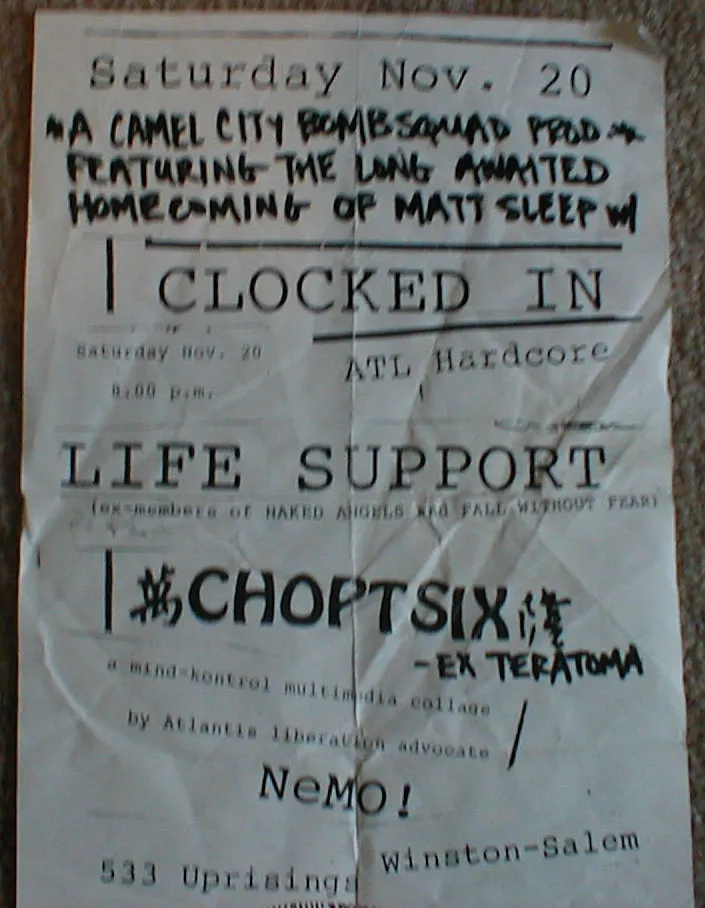 Saturday Nov. 20
A CAMEL CITY BOMBSQUAD PROD
FEATURING THE LONG AWAITED
HOMECOMING OF MATT SLEEP w/
CLOCKED IN
Saturday Nov. 20
ATL Hardcore
8:00 p.m.
LIFE SUPPORT
(ex-members of NAKED ANGELS and FALL WITHOUT FEAR)
CHOPTSIX
-EX TERATOMA
a mind-kontrol multimedia collage
by Atlantis liberation advocate
NeMO!
533 Uprisings Winston-Salem